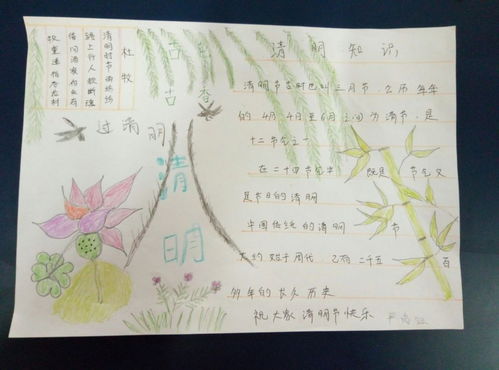 杜牧
清明时节雨纷纷
路上行人欲断魂
借问酒家何处有
牧童遥指杏花村
过清明
清明
清明知识
清明节古时也叫三月节，公历每年
的4月4日至6日之间为清节，是
十二节气之一
在二十四节气中 既是 节气又
是节日的清明
中国传统的清明 节
大约始于周代，已有二千五 百
多年的长久历史
祝大家清明节快乐